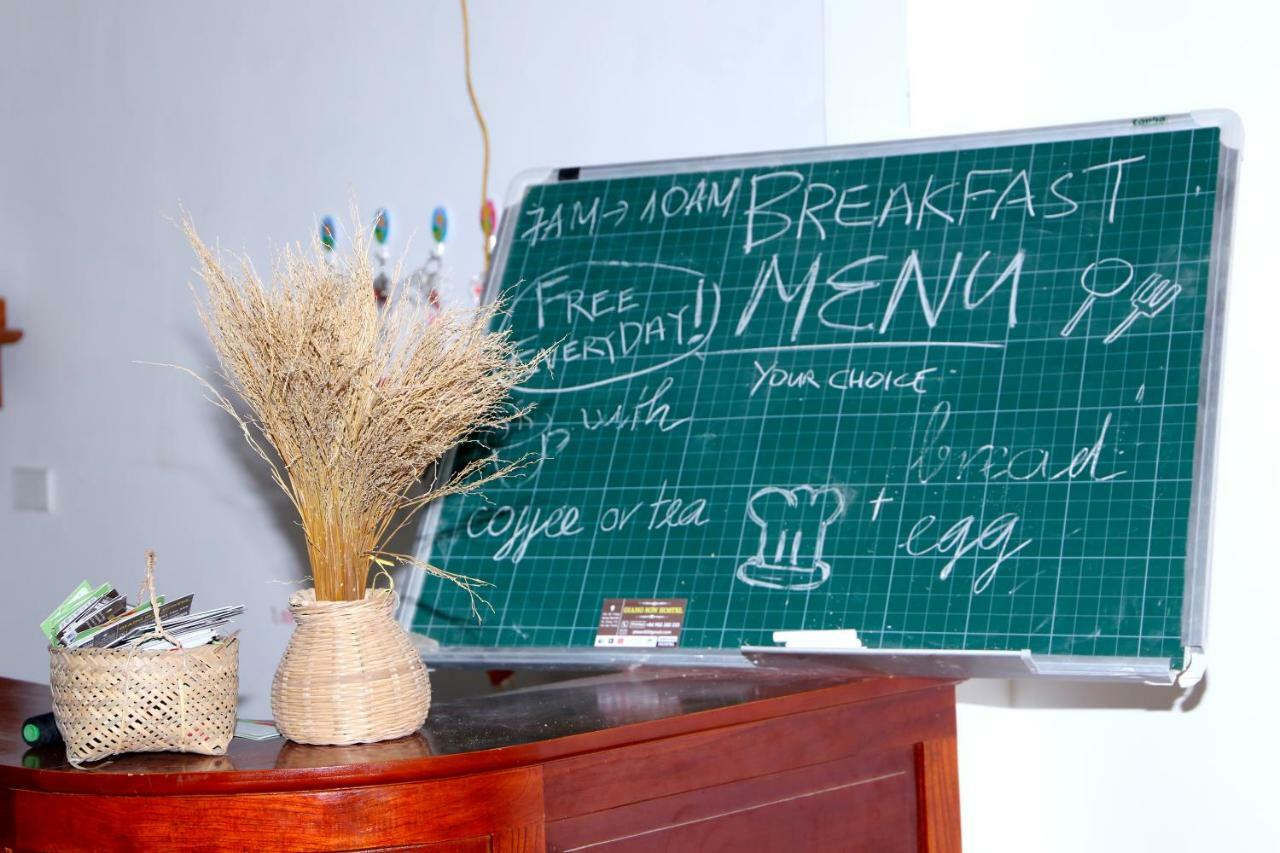 7AM → 10AM BREAKFAST
MENU
FREE
EVERYDAY!
YOUR CHOICE
with
bread
coffee or tea
+
egg
GIANG SON HOSTEL